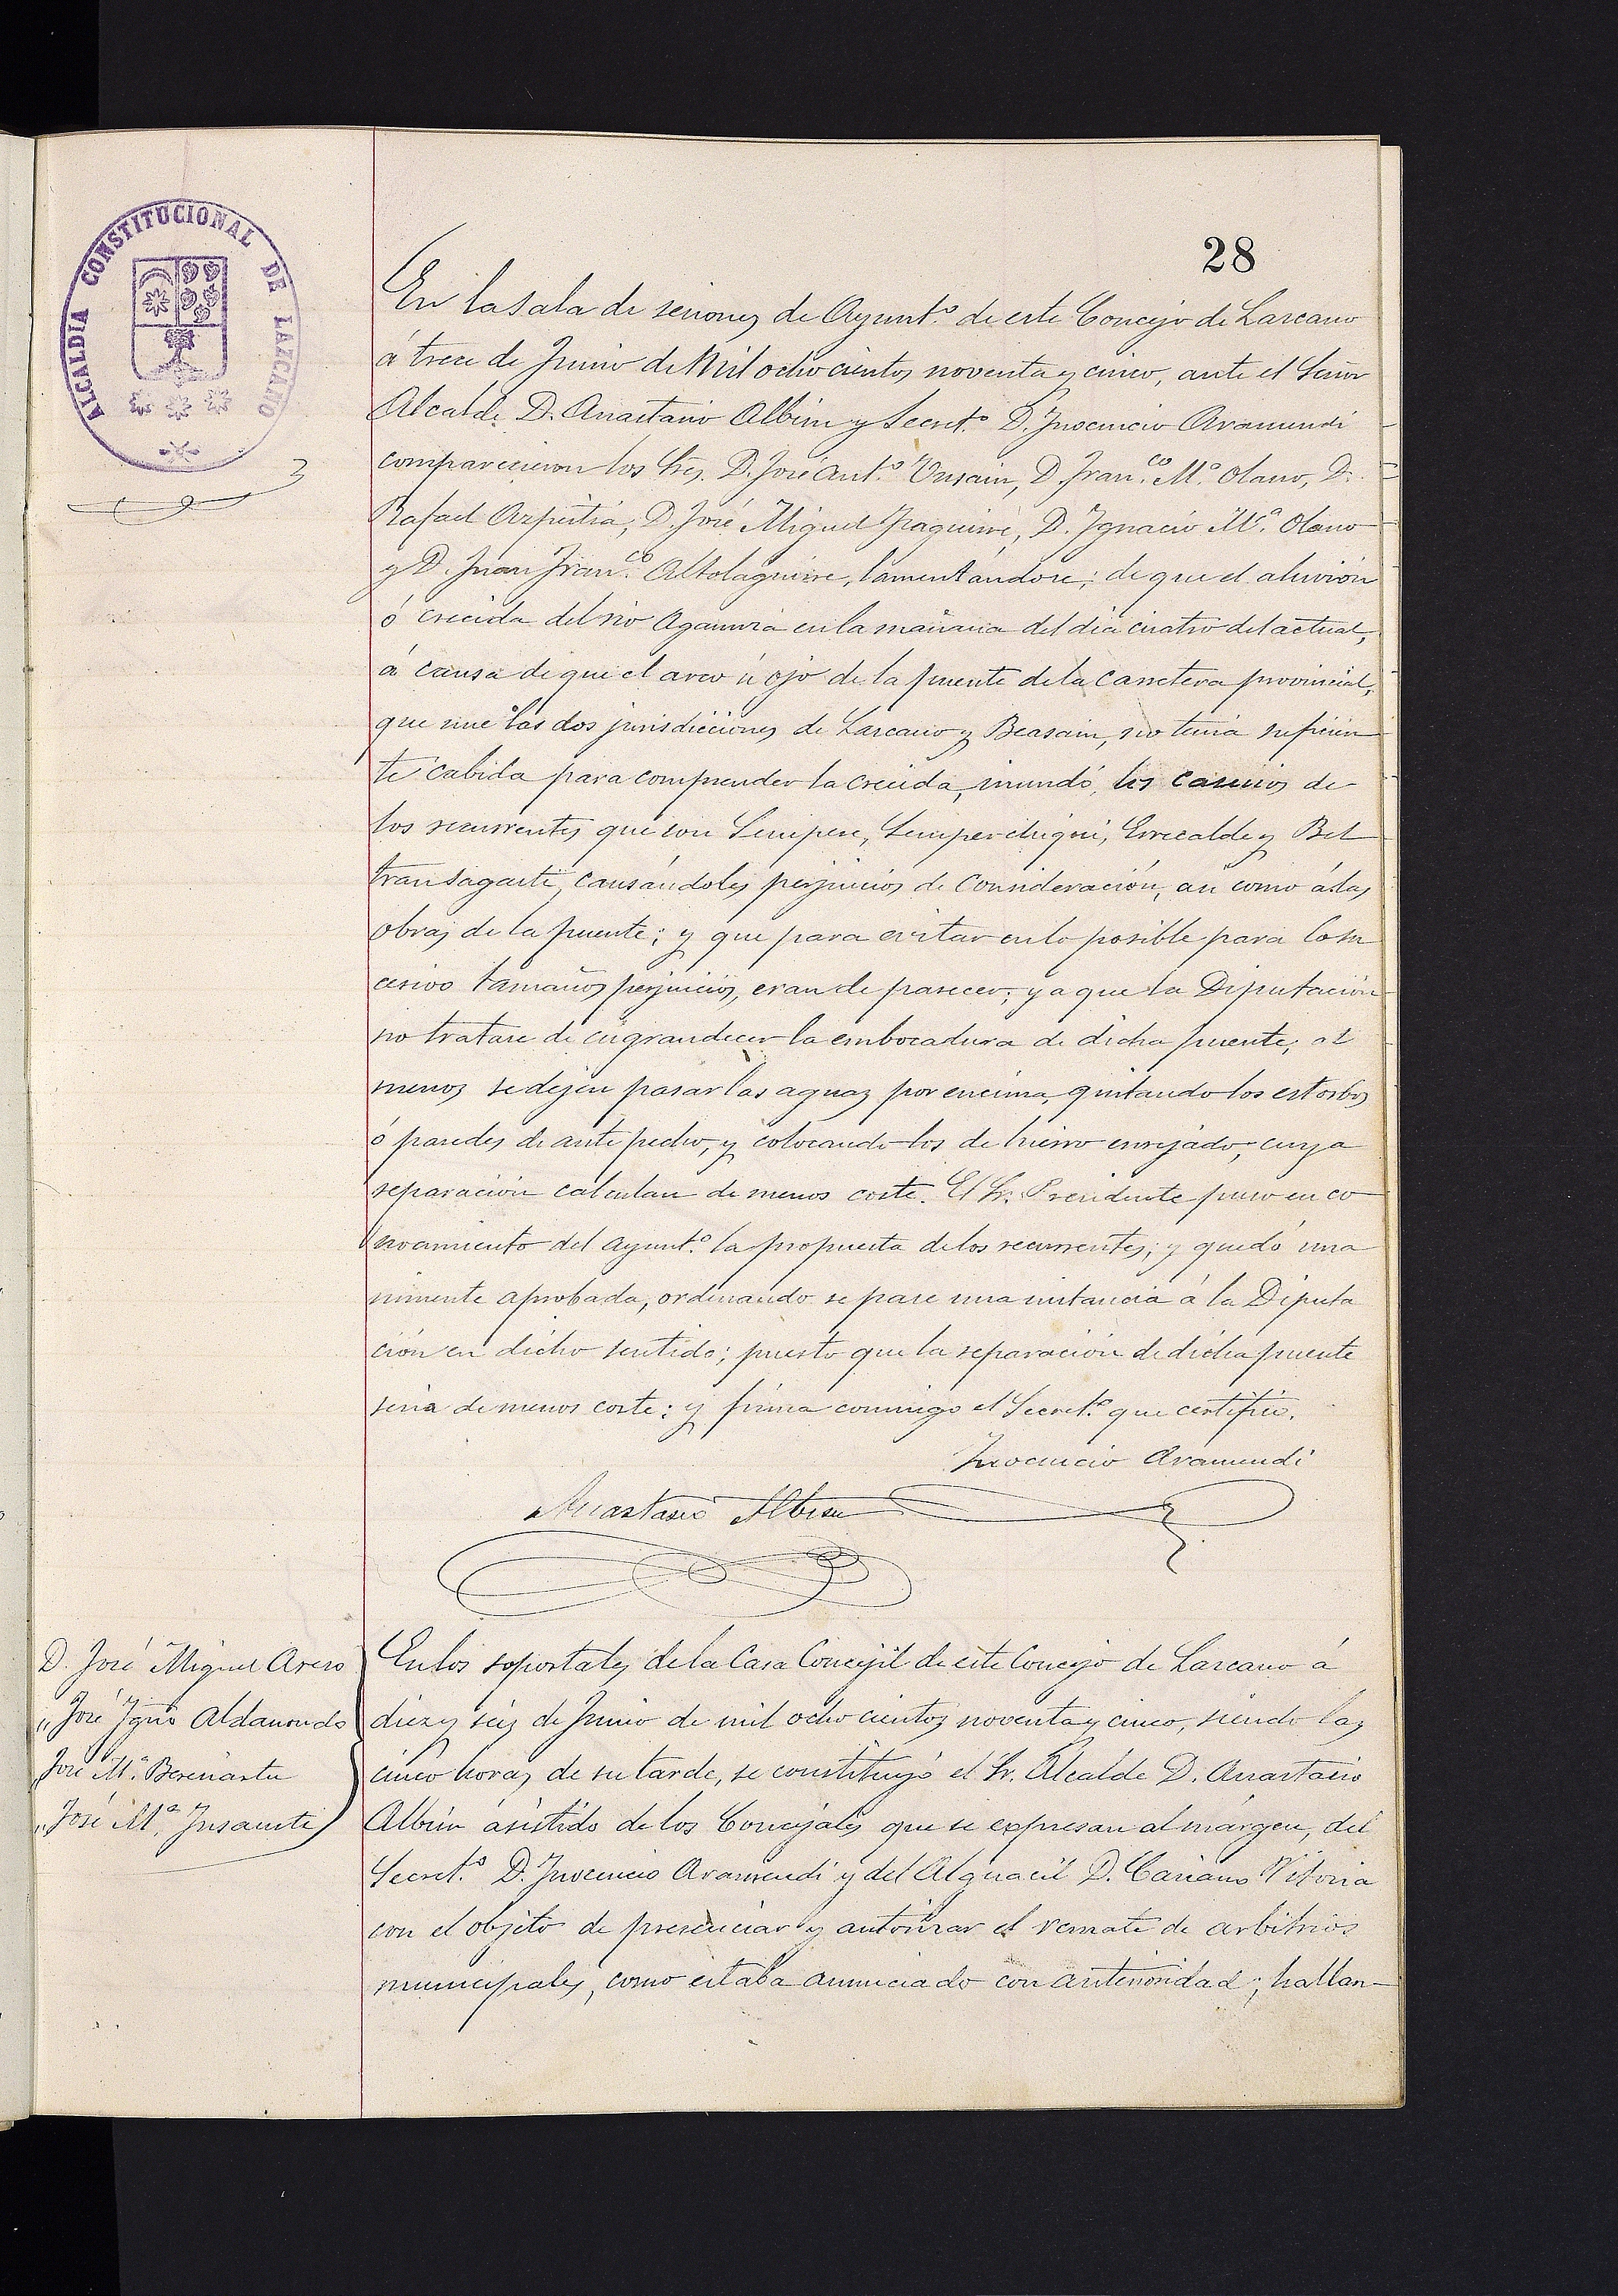 ALCALDIA CONSTITUCIONAL DE LAZCANO
28
En la sala de sesiones de Ayunt.º de este Concejo de Lazcano
á trece de Junio de Mil ochocientos noventa y cinco, ante el Señor
Alcalde D. Anastasio Albisu y Secret.º D. Inocencio Aramendi
comparecieron los Sres. D. José Ant.º Unsain, D. Fran.co M.ª Olano, D.
Rafael Azpeitia, D. José Miguel Yraguirre, D. Ygnacio M.ª Olano
y D. Juan Fran.co Altolaguirre, lamentándose; de que el aluvión
ó crecida del rio Agaunza en la mañana del dia cuatro del actual,
á causa de que el arco ú ojo de la puente de la Carretera provincial,
que une las dos jurisdicciones de Lazcano y Beasain, no tenia suficien
te cabida para comprender la crecida, inundó, los caserios de
los recurrentes que son Sempere, Semperchiqui, Errecalde y Bel
transagasti, causándoles perjuicios de Consideración, asi como á las
obras de la puente; y que para evitar en lo posible para lo su
cesivo tamaños perjuicios, eran de parecer; ya que la Diputación
no tratase de engrandecer la embocadura de dicha puente; al
menos se dejen pasar las aguas por encima, quitando los estorbos
ó paredes de ante pecho, y colocando los de hierro enrejado, cuya
reparación calculan de menos coste. El Sr. Presidente puso en co
nocimiento del Ayunt.º la propuesta de los recurrentes; y quedó una
nimente aprobada, ordenando se pase una instancia á la Diputa
ción en dicho sentido; puesto que la reparación de dicha puente
seria de menos coste: y firma conmigo el Secret.º que certifico.
Inocencio Aramendi
Anastasio Albisu
D. José Miguel Areso
„ José Ygn.º Aldanondo
„ José M.ª Berenastu
„ José M.ª Insausti
En los soportales de la Casa Concejil de este Concejo de Lazcano á
diez y seis de Junio de mil ocho cientos noventa y cinco, siendo las
cinco horas de su tarde, se constituyó el Sr. Alcalde D. Anastasio
Albisu asistido de los Concejales que se expresan al márgen, del
Secret.º D. Inocencio Aramendi y del Alguacil D. Vitoria
con el objeto de presenciar y autorizar el remate de arbitrios
municipales, como estaba anunciado con anterioridad; hallan-